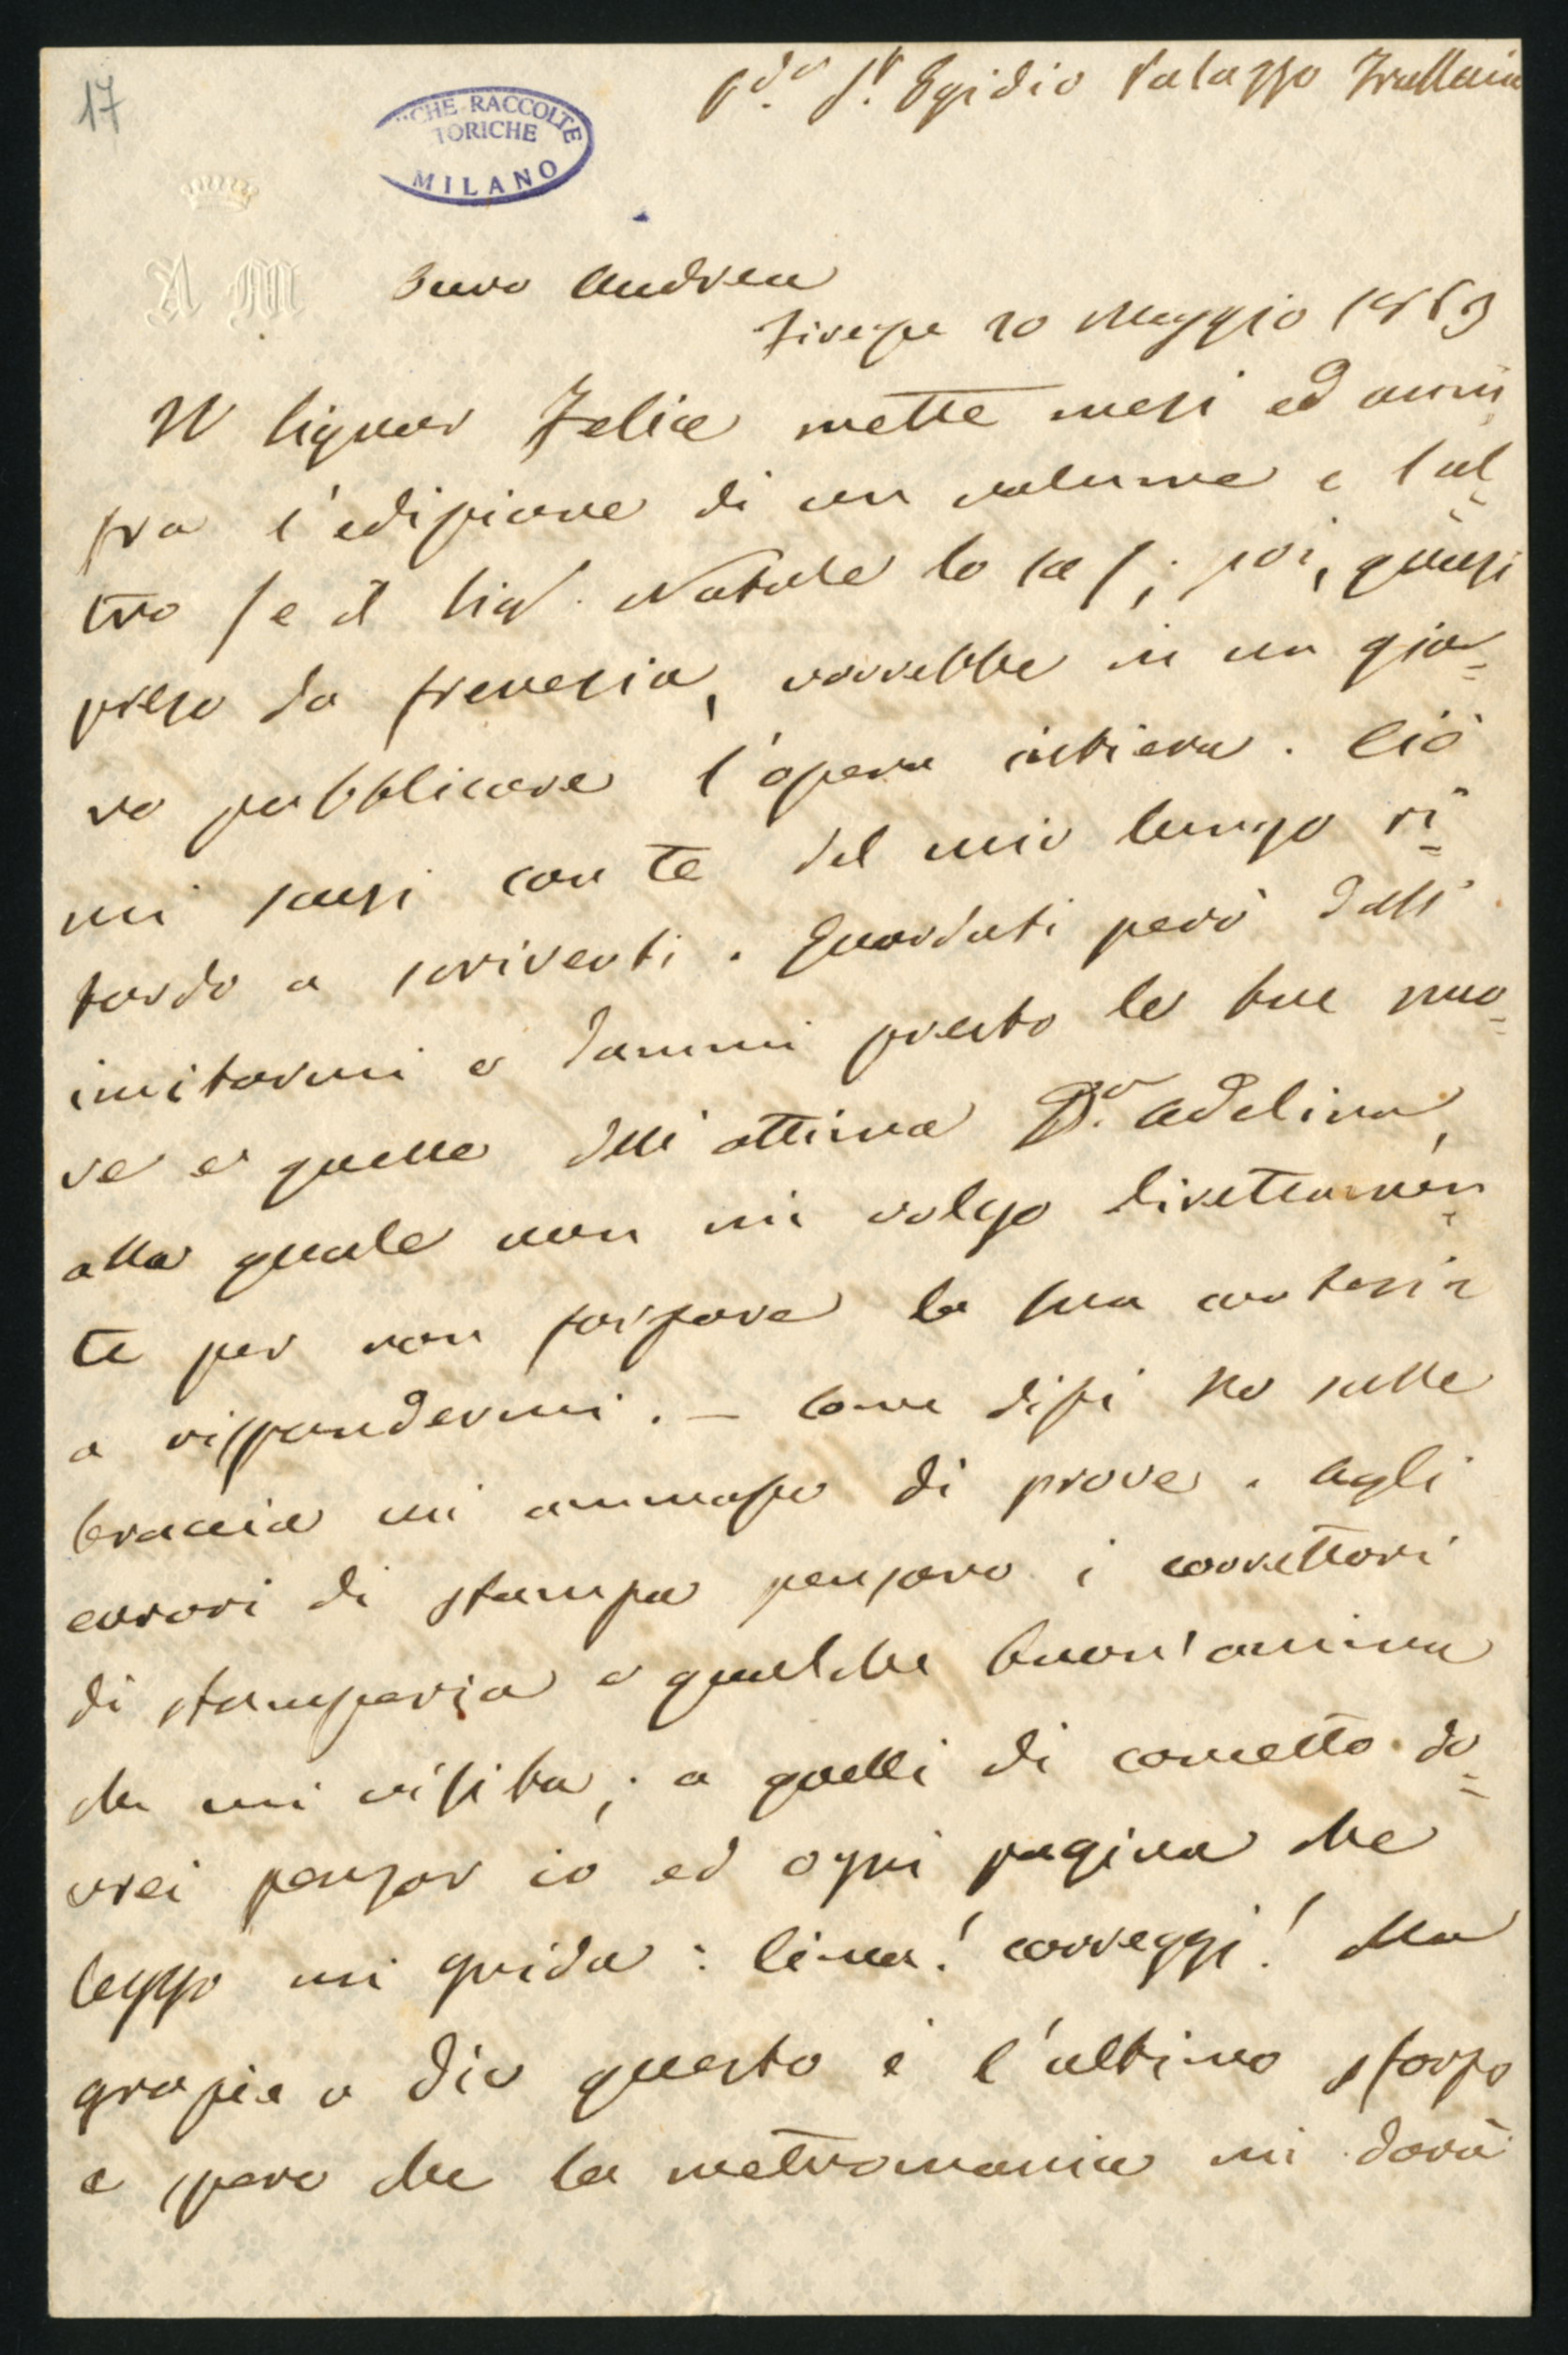 17
CHE RACCOLTE
TORICHE
MILANO
P.za S.t Egidio Palazzo
A M
Caro Andrea
Firenze 20 Maggio 1863
Il Signor Felice mette mesi ed anni
fra l'edizione di un volume e l'al=
tro (e il Sigr. Natale lo sa); poi, quasi
preso da frenesia, vorrebbe in un gior=
no pubblicare l'opera intiera. Ciò
mi scusi con te del mio lungo ri=
tardo a scriverti. Guardati però dall'
imitarmi e dammi presto le tue nuo=
ve e quelle dell'ottima Da. Adelina,
alla quale non mi volgo direttamen=
te per non forzare la sua cortesia
a rispondermi. — Come dissi ho sulle
braccia un ammasso di prove. Agli
errori di stampa pensano i correttori
di stamperia e qualche buon'anima
che mi visita; a quelli di concetto do=
vrei pensar io ed ogni pagina che
leggo mi grida: lima! correggi! Ma
grazie a Dio questo è l'ultimo sforzo
e spero che la metromania mi darà